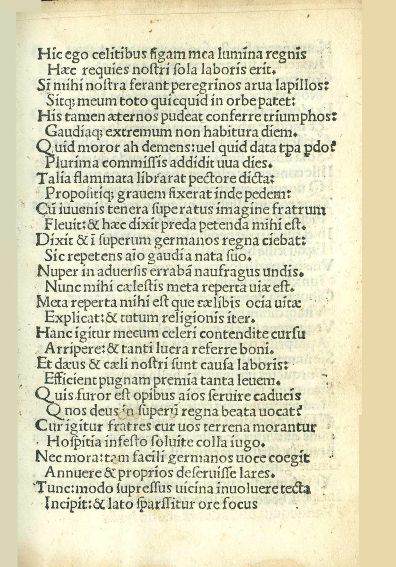 Hic ego celitibus figam mea lumina regnis
Hæc requies nostri sola laboris erit.
Si mihi nostra ferant peregrinos arua lapillos:
Sitq; meum toto quicquid in orbe patet:
His tamen æternos pudeat conferre triumphos:
Gaudiaq; extremum non habitura diem.
Quid moror ah demens: uel quid data tp̄a p̄do?
Plurima commissis addidit una dies.
Talia flammata librarat pectore dicta:
Propositiq; grauem fixerat inde pedem:
Cū iuuenis tenera superatus imagine fratrum
Fleuit: & hæc dixit preda petenda mihi est.
Dixit & ī superum germanos regna ciebat:
Sic repetens aīo gaudia nata suo.
Nuper in aduersis errabā naufragus undis.
Nunc mihi cælestis meta reperta uiæ est.
Meta reperta mihi est que cælibis ocia uitæ
Explicat: & tutum religionis iter.
Hanc igitur mecum celeri contendite cursu
Arripere: & tanti lucra referre boni.
Et dæus & cæli nostri sunt causa laboris:
Efficient pugnam premia tanta leuem.
Quis furor est opibus aīos seruire caducis
Quos deus in superū regna beata uocat?
Cur igitur fratres cur uos terrena morantur
Hospitia infesto soluite colla iugo.
Nec mora: tam facili germanos uoce coegit
Annuere & proprios deseruisse lares.
Tunc: modo supressus uicina inuoluere tecta
Incipit: & lato sparssitur ore focus